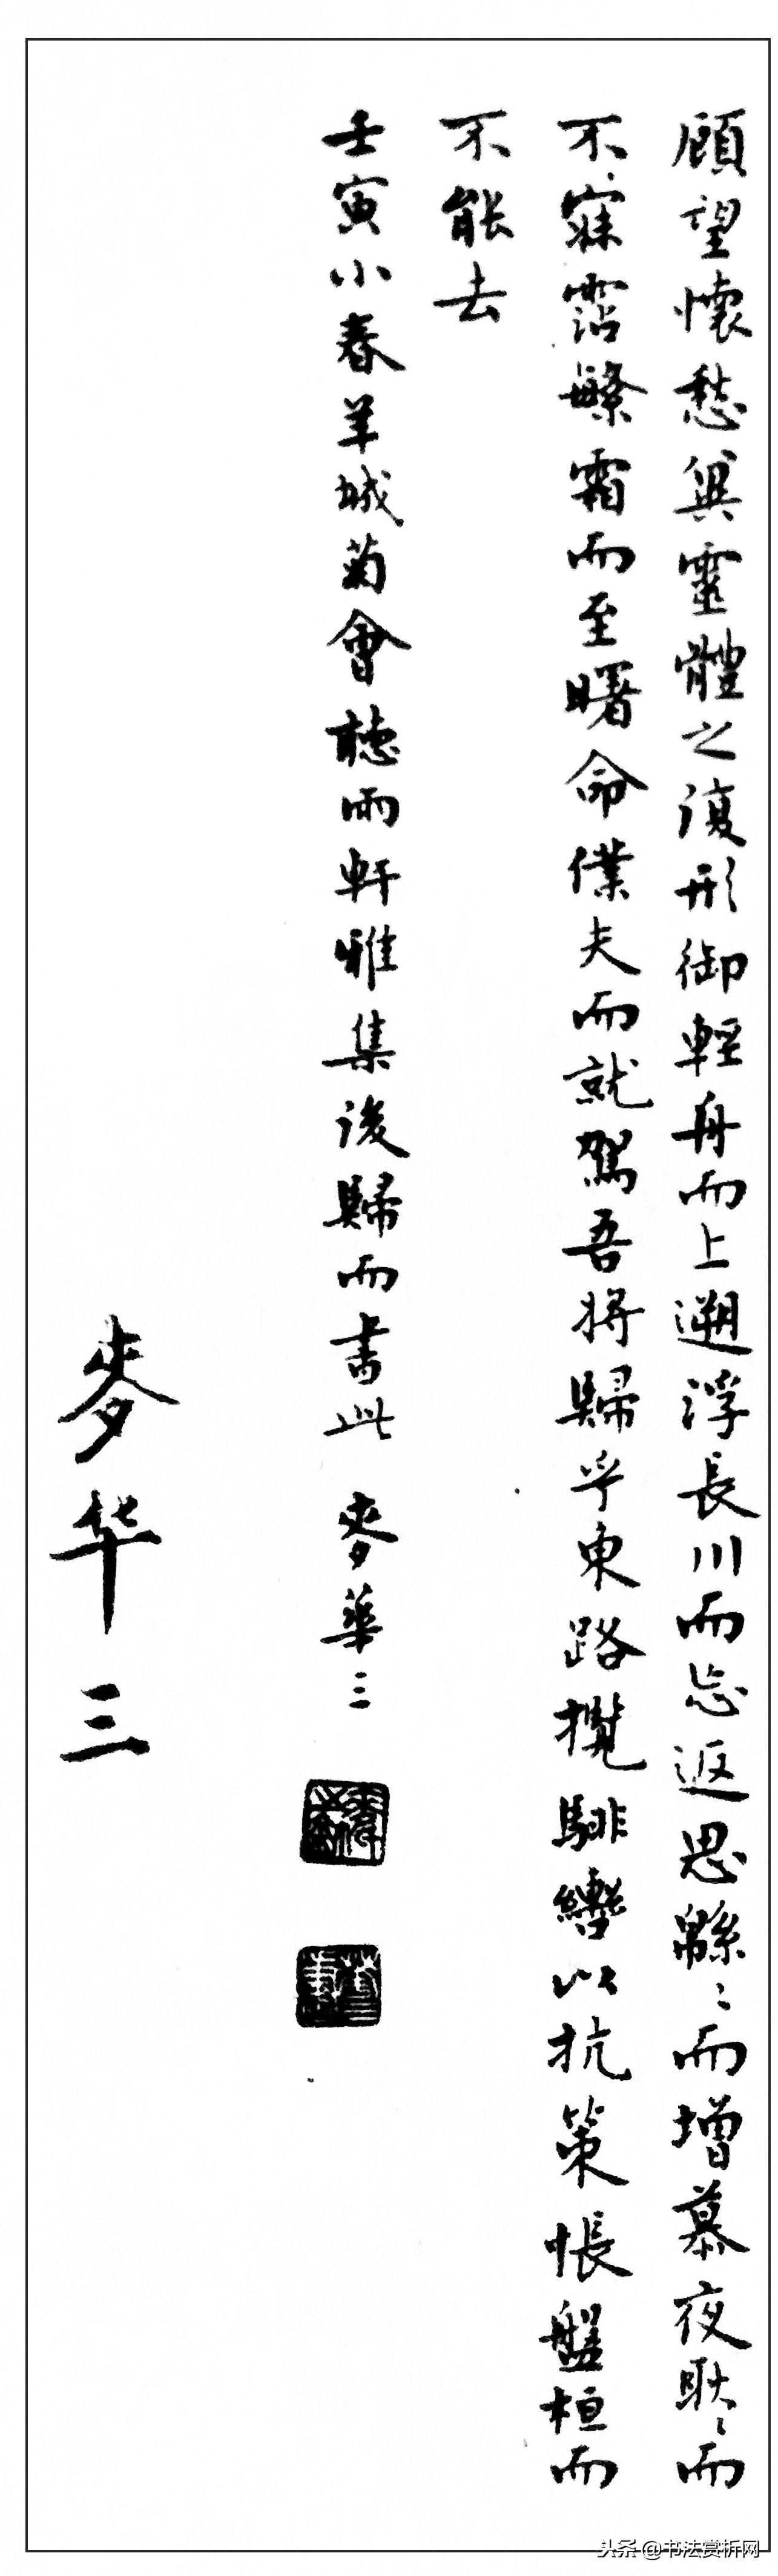 顧望懷愁兾靈體之復形御輕舟而上遡浮長川而忘返思緜〻而增慕夜耿〻而
不寐霑繁霜而至曙命僕夫而就駕吾將歸乎東路攬騑轡以抗策悵盤桓而
不能去
壬寅小春羊城菊會聽雨軒雅集後歸而書此 麥華三
麥华三
头条 @书法赏析网